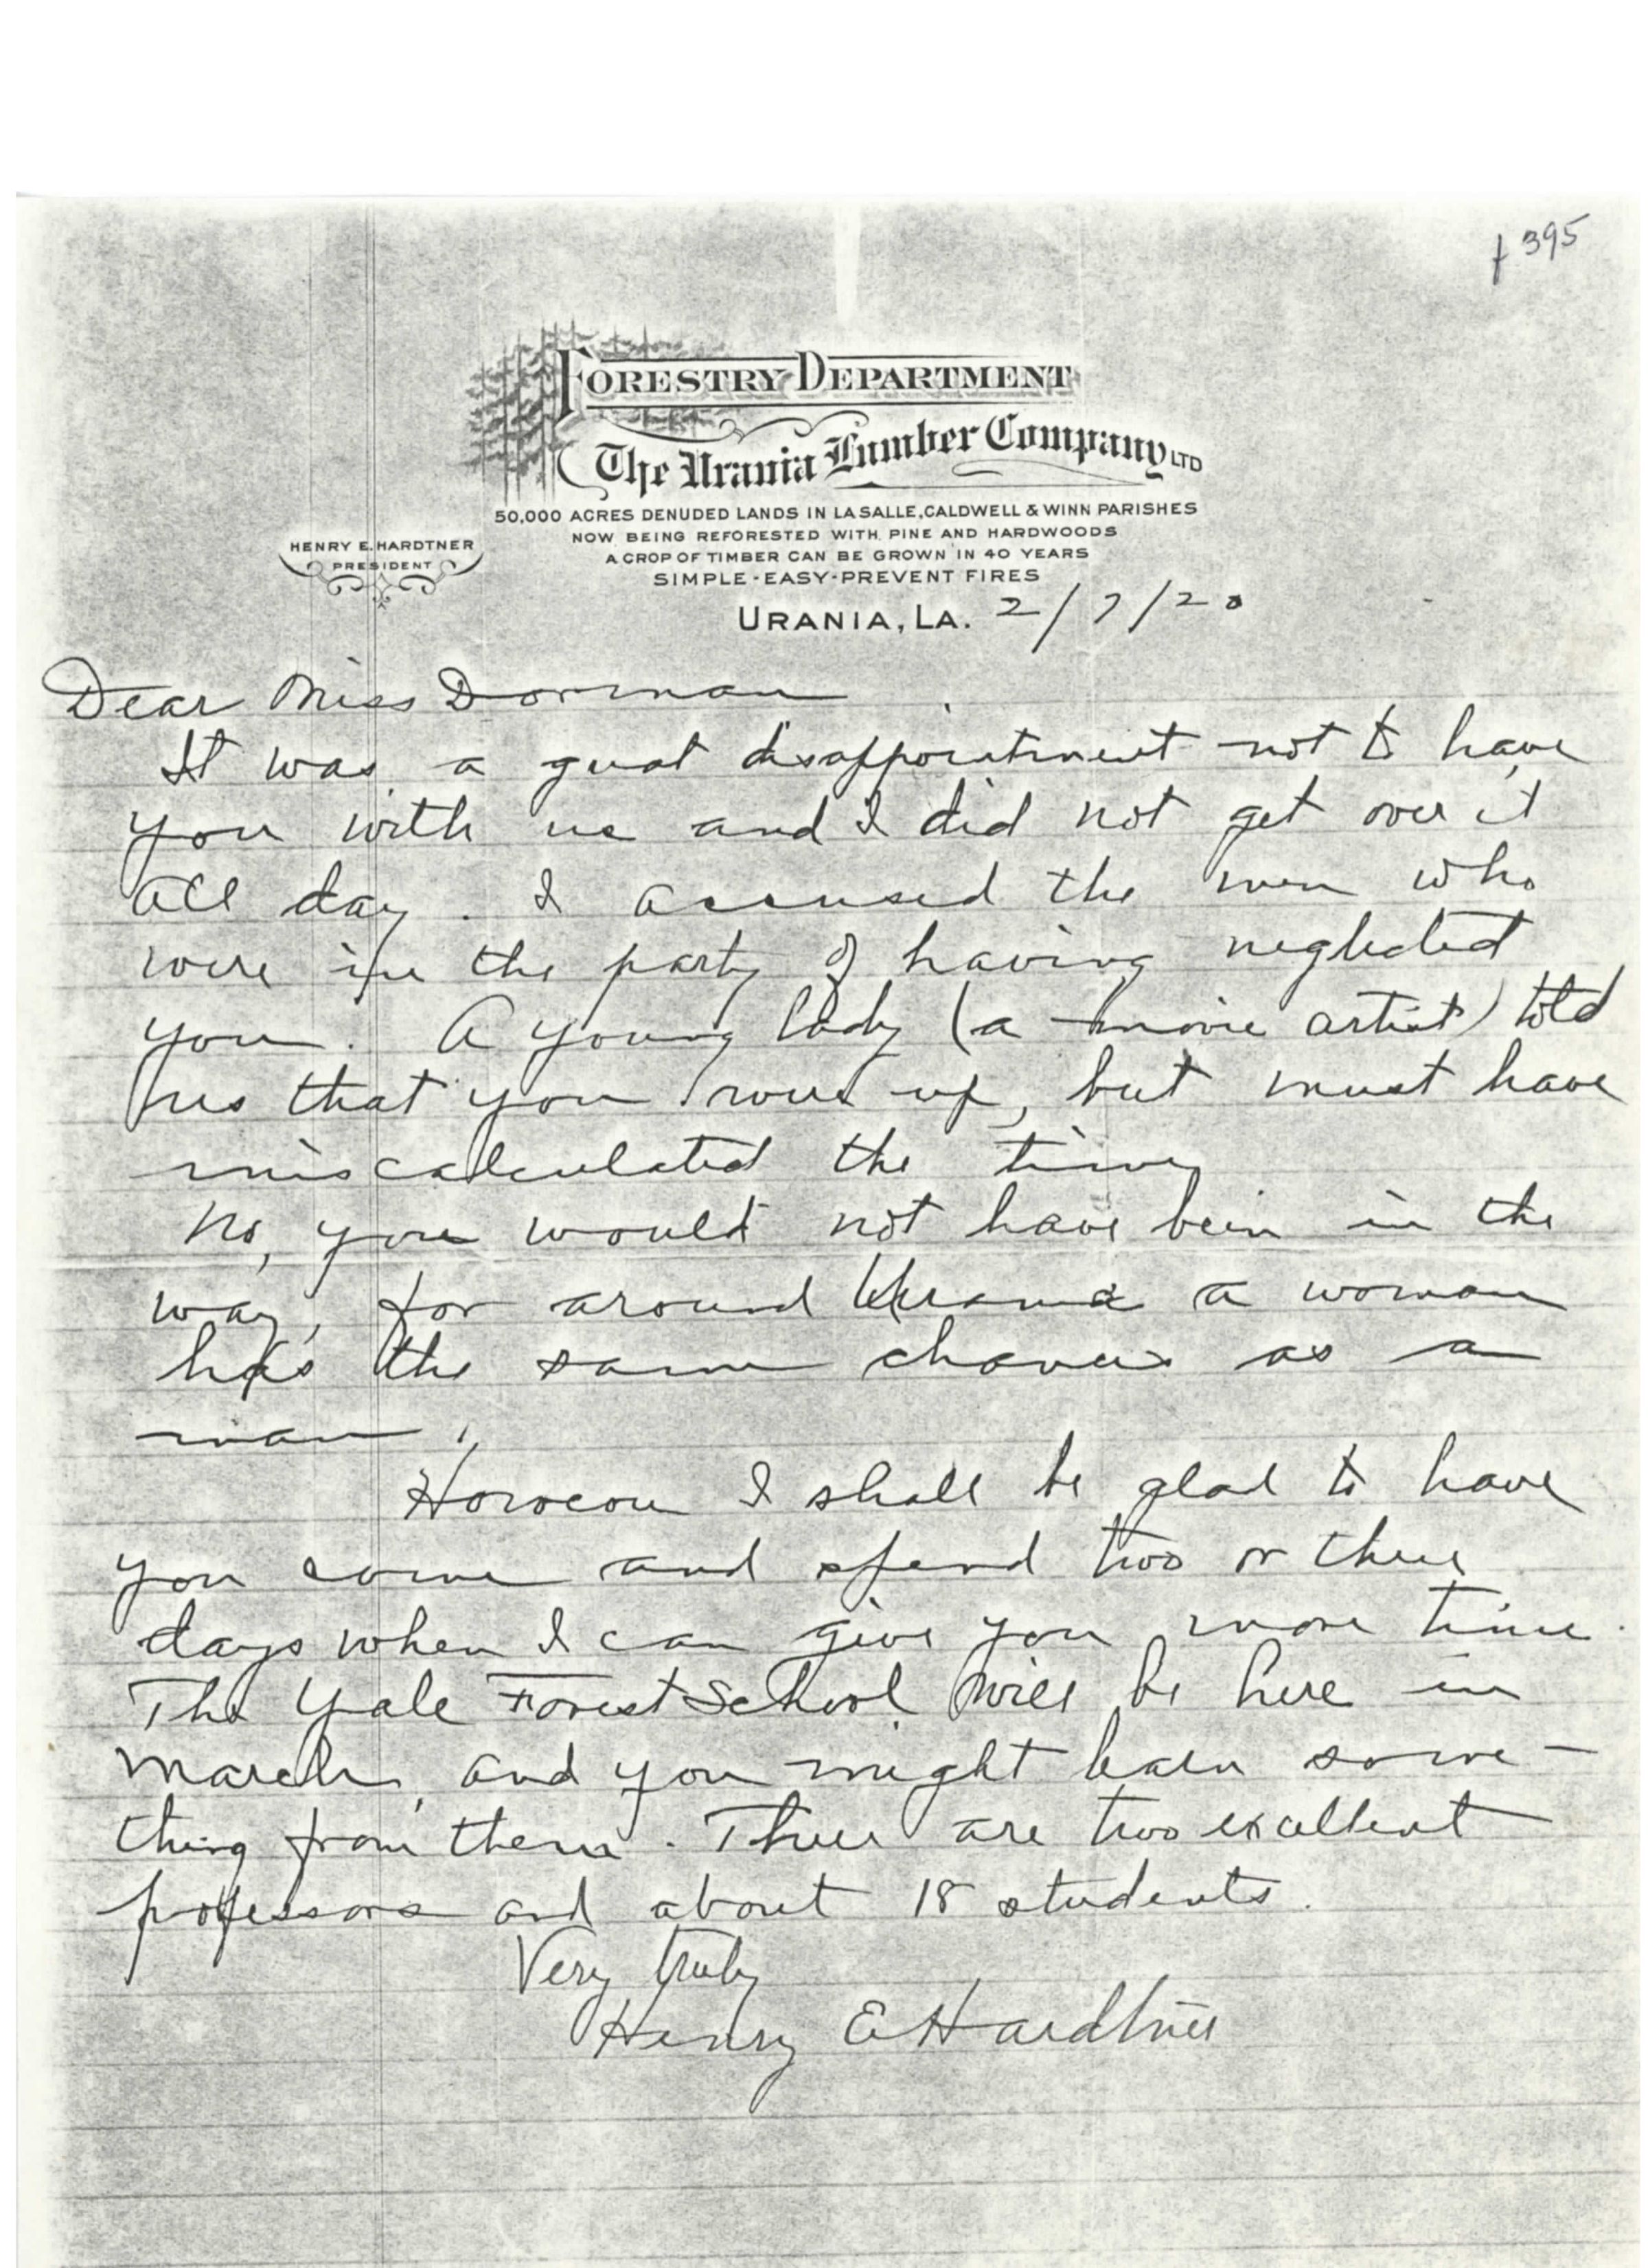 f 395
FORESTRY DEPARTMENT
The Urania Lumber Company LTD
50,000 ACRES DENUDED LANDS IN LA SALLE, CALDWELL & WINN PARISHES
NOW BEING REFORESTED WITH PINE AND HARDWOODS
A CROP OF TIMBER CAN BE GROWN IN 40 YEARS
SIMPLE-EASY-PREVENT FIRES
HENRY E. HARDTNER
PRESIDENT
URANIA, LA. 2/7/20
Dear Miss Dorman
It was a great disappointment not to have
you with us and I did not get over it
all day. I accused the men who
were in the party of having neglected
you. A young lady (a movie artist) told
us that you were up, but must have
miscalculated the time
No, you would not have been in the
way, for around Urania a woman
has the same chances as a
man.
However I shall be glad to have
you come and spend two or three
days when I can give you more time.
The Yale Forest School will be here in
March, and you might learn some-
thing from them. There are two excellent
professors and about 18 students.
Very truly
Henry E Hardtner